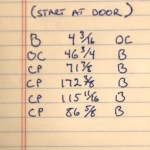 (START AT DOOR)
B 4 3/16 OC
OC 46 3/4 B
CP 71 7/8 B
CP 172 3/8 B
CP 115 11/16 B
CP 86 5/8 B